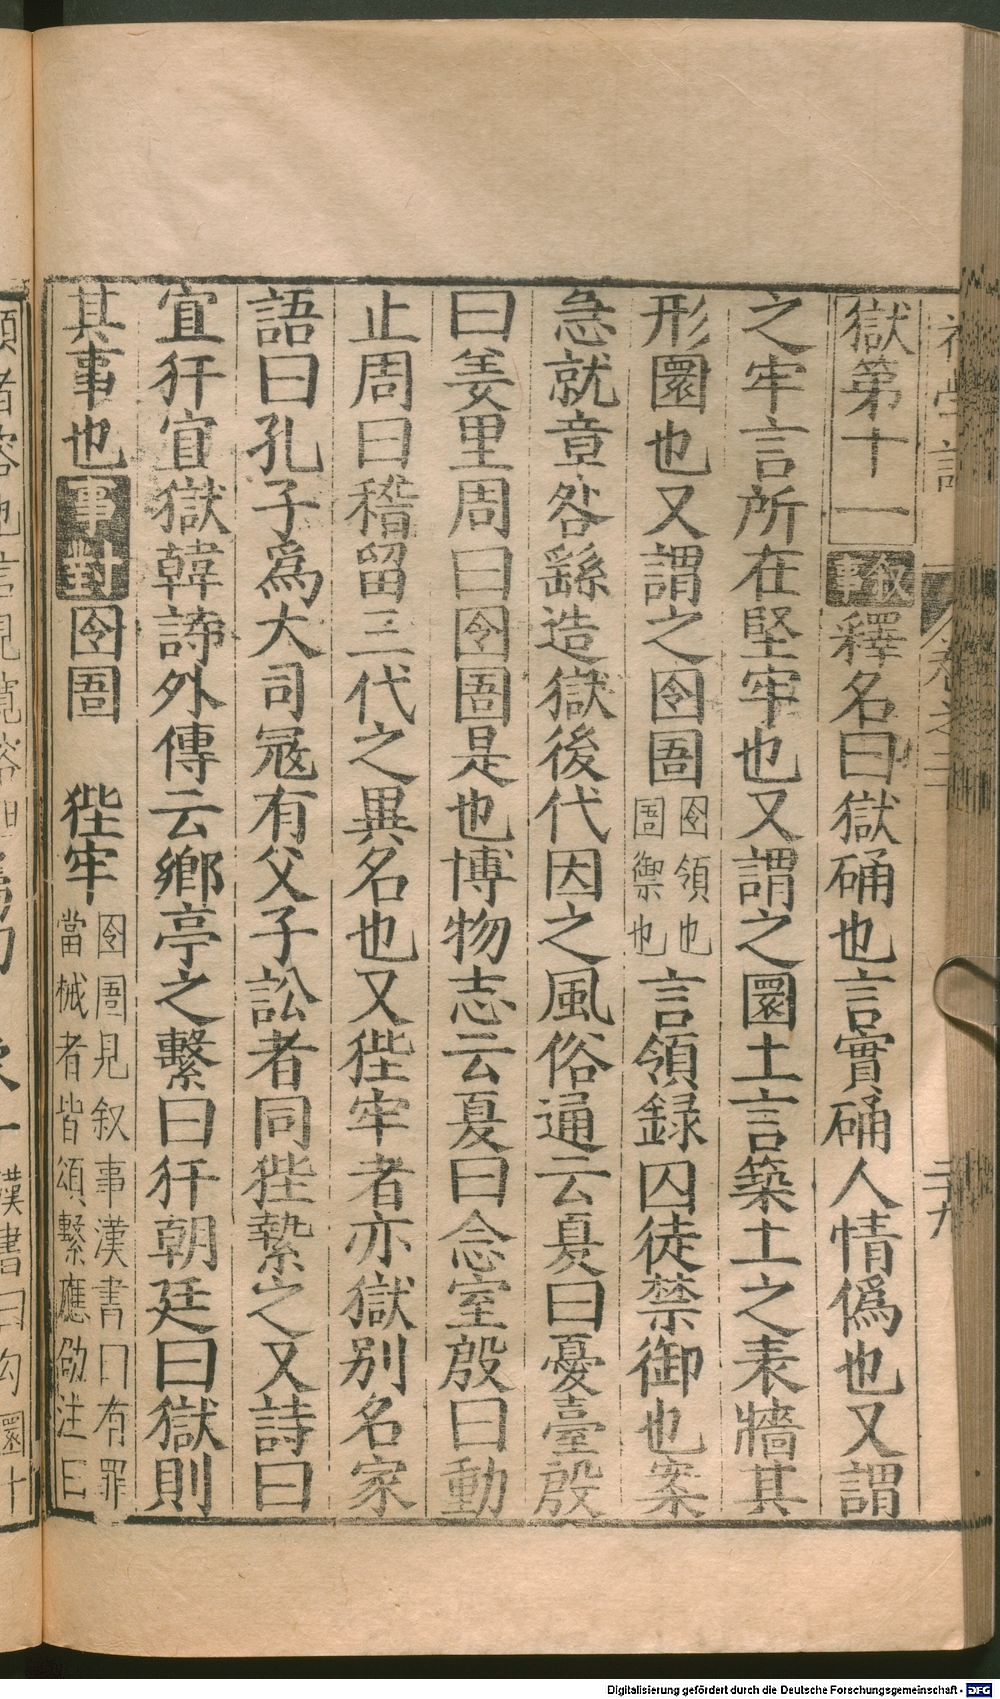 獄第十一 叙事 釋名曰獄硧也言實硧人情僞也又謂
之牢言所在堅牢也又謂之圜土言築土之表牆其
形圜也又謂之囹圄囹領也圄禦也言領録囚徒禁御也案
急就章咎繇造獄後代因之風俗通云夏曰憂臺殷
曰羑里周曰囹圄是也博物志云夏曰念室殷曰動
止周曰稽留三代之異名也又狴牢者亦獄别名家
語曰孔子爲大司寇有父子訟者同狴縶之又詩曰
宜犴宜獄韓詩外傳云鄉亭之繫曰犴朝廷曰獄則
其事也 事對 囹圄 狴牢 囹圄見叙事漢書曰有罪
當械者皆頌繫應劭注曰
卷之二
二十九
Digitalisierung gefördert durch die Deutsche Forschungsgemeinschaft - DFG